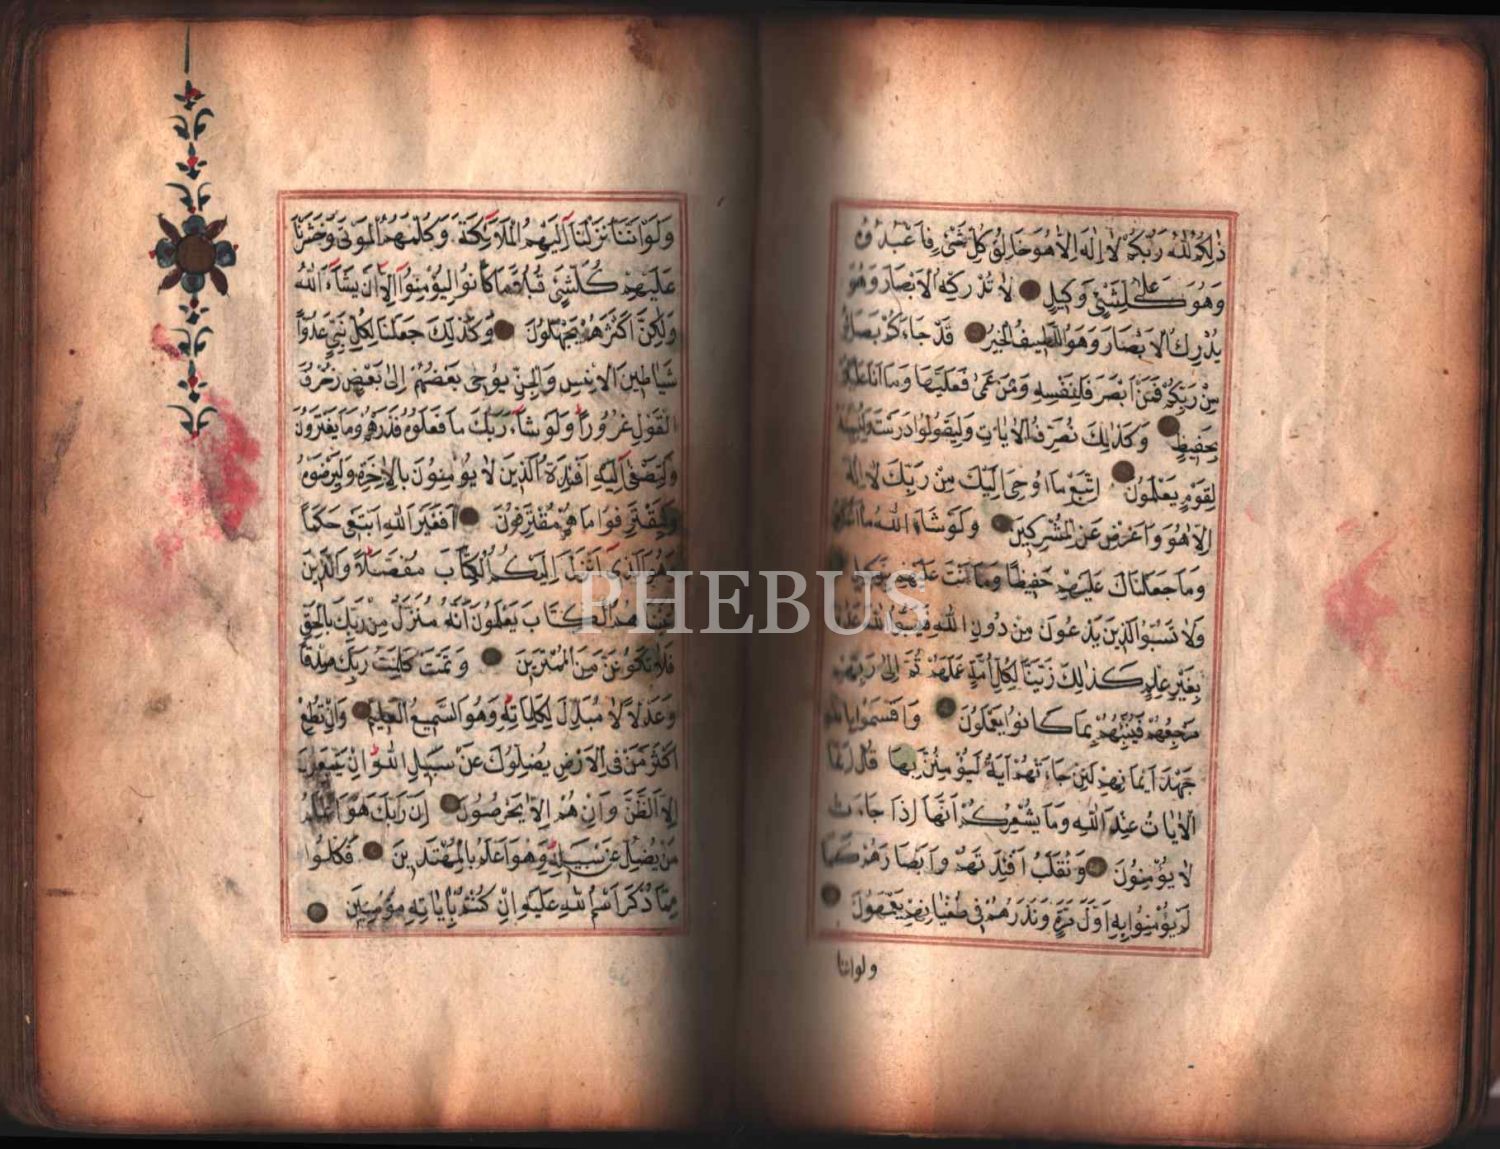 ذٰلِكُمُ اللّٰهُ رَبُّكُمْ لَا اِلٰهَ اِلَّا هُوَ خَالِقُ كُلِّ شَیْءٍ فَاعْبُدُوهُ
وَهُوَ عَلٰى كُلِّ شَیْءٍ وَكِيلٌ لَا تُدْرِكُهُ الْاَبْصَارُ وَهُوَ
يُدْرِكُ الْاَبْصَارَ وَهُوَ اللَّطِيفُ الْخَبِيرُ قَدْ جَاءَكُمْ بَصَائِرُ
مِنْ رَبِّكُمْ فَمَنْ اَبْصَرَ فَلِنَفْسِهِ وَمَنْ عَمِیَ فَعَلَيْهَا وَمَا اَنَا عَلَيْكُمْ
بِحَفِيظٍ وَكَذٰلِكَ نُصَرِّفُ الْاٰيَاتِ وَلِيَقُولُوا دَرَسْتَ وَلِنُبَيِّنَهُ
لِقَوْمٍ يَعْلَمُونَ اِتَّبِعْ مَا اُوحِیَ اِلَيْكَ مِنْ رَبِّكَ لَا اِلٰهَ
اِلَّا هُوَ وَاَعْرِضْ عَنِ الْمُشْرِكِينَ وَلَوْ شَاءَ اللّٰهُ مَا اَشْرَكُوا
وَمَا جَعَلْنَاكَ عَلَيْهِمْ حَفِيظًا وَمَا اَنْتَ عَلَيْهِمْ بِوَكِيلٍ
وَلَا تَسُبُّوا الَّذِينَ يَدْعُونَ مِنْ دُونِ اللّٰهِ فَيَسُبُّوا اللّٰهَ عَدْوًا
بِغَيْرِ عِلْمٍ كَذٰلِكَ زَيَّنَّا لِكُلِّ اُمَّةٍ عَمَلَهُمْ ثُمَّ اِلٰى رَبِّهِمْ
مَرْجِعُهُمْ فَيُنَبِّئُهُمْ بِمَا كَانُوا يَعْمَلُونَ وَاَقْسَمُوا بِاللّٰهِ
جَهْدَ اَيْمَانِهِمْ لَئِنْ جَاءَتْهُمْ اٰيَةٌ لَيُؤْمِنُنَّ بِهَا قُلْ اِنَّمَا
الْاٰيَاتُ عِنْدَ اللّٰهِ وَمَا يُشْعِرُكُمْ اَنَّهَا اِذَا جَاءَتْ
لَا يُؤْمِنُونَ وَنُقَلِّبُ اَفْئِدَتَهُمْ وَاَبْصَارَهُمْ كَمَا
لَمْ يُؤْمِنُوا بِهِ اَوَّلَ مَرَّةٍ وَنَذَرُهُمْ فِی طُغْيَانِهِمْ يَعْمَهُونَ
ولو اننا
وَلَوْ اَنَّنَا نَزَّلْنَا اِلَيْهِمُ الْمَلٰٓئِكَةَ وَكَلَّمَهُمُ الْمَوْتٰى وَحَشَرْنَا
عَلَيْهِمْ كُلَّ شَیْءٍ قُبُلًا مَا كَانُوا لِيُؤْمِنُوا اِلَّا اَنْ يَشَاءَ اللّٰهُ
وَلٰكِنَّ اَكْثَرَهُمْ يَجْهَلُونَ وَكَذٰلِكَ جَعَلْنَا لِكُلِّ نَبِیٍّ عَدُوًّا
شَيَاطِينَ الْاِنْسِ وَالْجِنِّ يُوحِی بَعْضُهُمْ اِلٰى بَعْضٍ زُخْرُفَ
الْقَوْلِ غُرُورًا وَلَوْ شَاءَ رَبُّكَ مَا فَعَلُوهُ فَذَرْهُمْ وَمَا يَفْتَرُونَ
وَلِتَصْغٰى اِلَيْهِ اَفْئِدَةُ الَّذِينَ لَا يُؤْمِنُونَ بِالْاٰخِرَةِ وَلِيَرْضَوْهُ
وَلِيَقْتَرِفُوا مَا هُمْ مُقْتَرِفُونَ اَفَغَيْرَ اللّٰهِ اَبْتَغِی حَكَمًا
وَهُوَ الَّذِی اَنْزَلَ اِلَيْكُمُ الْكِتَابَ مُفَصَّلًا وَالَّذِينَ
اٰتَيْنَاهُمُ الْكِتَابَ يَعْلَمُونَ اَنَّهُ مُنَزَّلٌ مِنْ رَبِّكَ بِالْحَقِّ
فَلَا تَكُونَنَّ مِنَ الْمُمْتَرِينَ وَتَمَّتْ كَلِمَتُ رَبِّكَ صِدْقًا
وَعَدْلًا لَا مُبَدِّلَ لِكَلِمَاتِهِ وَهُوَ السَّمِيعُ الْعَلِيمُ وَاِنْ تُطِعْ
اَكْثَرَ مَنْ فِی الْاَرْضِ يُضِلُّوكَ عَنْ سَبِيلِ اللّٰهِ اِنْ يَتَّبِعُونَ
اِلَّا الظَّنَّ وَاِنْ هُمْ اِلَّا يَخْرُصُونَ اِنَّ رَبَّكَ هُوَ اَعْلَمُ
مَنْ يَضِلُّ عَنْ سَبِيلِهِ وَهُوَ اَعْلَمُ بِالْمُهْتَدِينَ فَكُلُوا
مِمَّا ذُكِرَ اسْمُ اللّٰهِ عَلَيْهِ اِنْ كُنْتُمْ بِاٰيَاتِهِ مُؤْمِنِينَ
PHEBUS